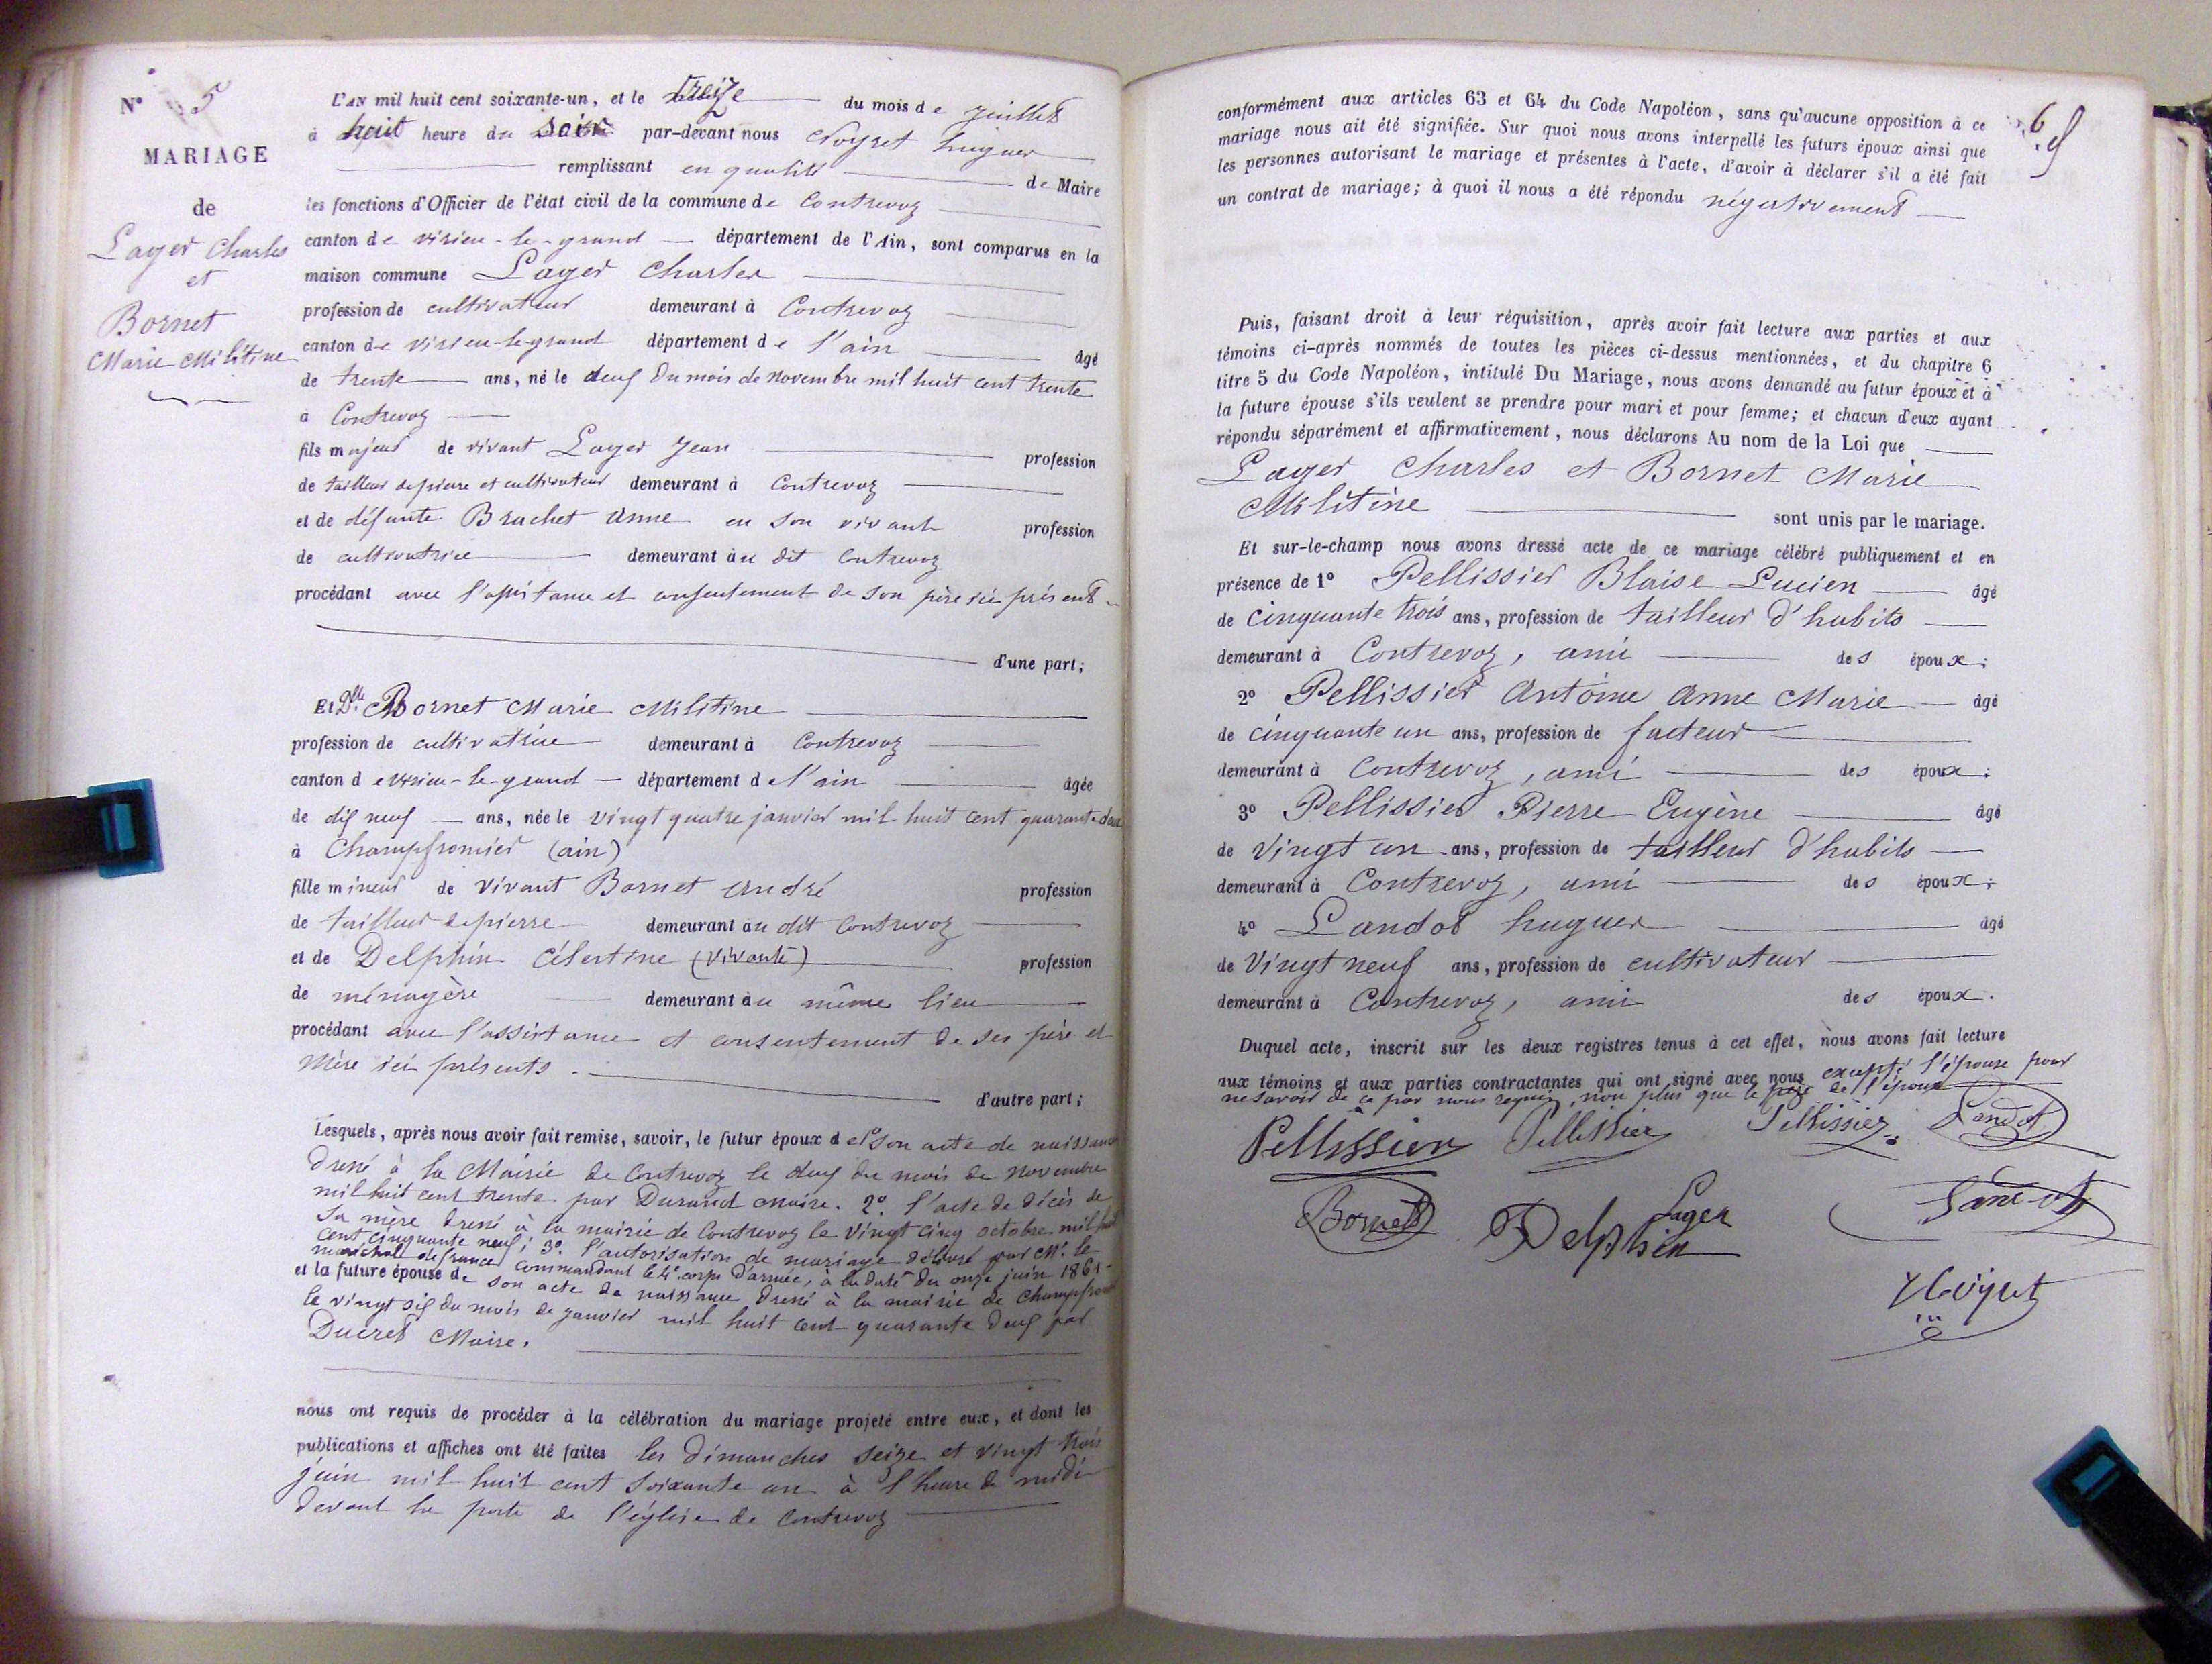 N° 5
MARIAGE
de
Lager Charles
et
Bornet
Marie Militine
L'an mil huit cent soixante-un, et le treize du mois de juillet
à huit heure du soir par-devant nous Noyret hugues
remplissant en qualité de Maire
les fonctions d'Officier de l'état civil de la commune de Contrevoz
canton de virieu-le-grand département de l'Ain, sont comparus en la
maison commune Lager Charles
profession de cultivateur demeurant à Contrevoz
canton de virieu-le-grand département de l'ain âgé
de trente ans, né le deux du mois de novembre mil huit cent trente
à Contrevoz
fils majeur de vivant Lager Jean profession
de tailleur de pierre et cultivateur demeurant à Contrevoz
et de défunte Brachet anne en son vivant profession
de cultivatrice demeurant au dit Contrevoz
procédant avec l'assistance et consentement de son père ici présent
d'une part;
Et Dlle Bornet Marie Militine
profession de cultivatrice demeurant à Contrevoz
canton de virieu-le-grand département de l'ain âgée
de dix neuf ans, née le vingt quatre janvier mil huit cent quarante deux
à Champfromier (ain)
fille mineur de vivant Bornet andré profession
de tailleur de pierre demeurant au dit Contrevoz
et de Delphin Célestine (vivante) profession
de ménagère demeurant au même lieu
procédant avec l'assistance et consentement de ses père et
mère ici présents.
d'autre part;
Lesquels, après nous avoir fait remise, savoir, le futur époux de 1° son acte de naissance
dressé à la Mairie de Contrevoz le deux du mois de novembre
mil huit cent trente par Durand Maire. 2° l'acte de décès de
sa mère dressé à la mairie de Contrevoz le vingt cinq octobre mil huit
cent cinquante neuf; 3° l'autorisation de mariage délivré par Mr. le
maréchal de france commandant le 4e corps d'armée, à la date du onze juin 1861-
et la future épouse de son acte de naissance dressé à la mairie de Champfromier
le vingt six du mois de janvier mil huit cent quarante deux par
Ducret Maire.
nous ont requis de procéder à la célébration du mariage projeté entre eux, et dont les
publications et affiches ont été faites les dimanches seize et vingt trois
juin mil huit cent soixante un à l'heure de midi
devant la porte de l'église de Contrevoz
6
conformément aux articles 63 et 64 du Code Napoléon, sans qu'aucune opposition à ce
mariage nous ait été signifiée. Sur quoi nous avons interpellé les futurs époux ainsi que
les personnes autorisant le mariage et présentes à l'acte, d'avoir à déclarer s'il a été fait
un contrat de mariage; à quoi il nous a été répondu négativement
Puis, faisant droit à leur réquisition, après avoir fait lecture aux parties et aux
témoins ci-après nommés de toutes les pièces ci-dessus mentionnées, et du chapitre 6
titre 5 du Code Napoléon, intitulé Du Mariage, nous avons demandé au futur époux et à
la future épouse s'ils veulent se prendre pour mari et pour femme; et chacun d'eux ayant
répondu séparément et affirmativement, nous déclarons Au nom de la Loi que
Lager Charles et Bornet Marie
Militine sont unis par le mariage.
Et sur-le-champ nous avons dressé acte de ce mariage célébré publiquement et en
présence de 1° Pellissier Blaise Lucien âgé
de cinquante trois ans, profession de tailleur d'habits
demeurant à Contrevoz, ami des époux;
2° Pellissier Antoine Anne Marie âgé
de cinquante un ans, profession de facteur
demeurant à Contrevoz, ami des époux;
3° Pellissier Pierre Eugène âgé
de vingt un ans, profession de tailleur d'habits
demeurant à Contrevoz, ami des époux;
4° Landot hugues âgé
de vingt neuf ans, profession de cultivateur
demeurant à Contrevoz, ami des époux.
Duquel acte, inscrit sur les deux registres tenus à cet effet, nous avons fait lecture
aux témoins et aux parties contractantes qui ont signé avec nous excepté l'épouse pour
ne savoir de ce par nous requis, non plus que le père de l'époux
Pellissier Pellissier Pellissier Landot
Bornet Delphin Lager
Noyret